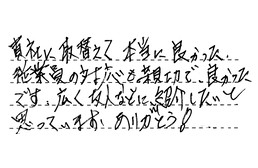 貴社に取替えて本当に良かった。
従業員の対応も親切で、良かった
です。広く友人などに紹介したいと
思っていますありがとう!